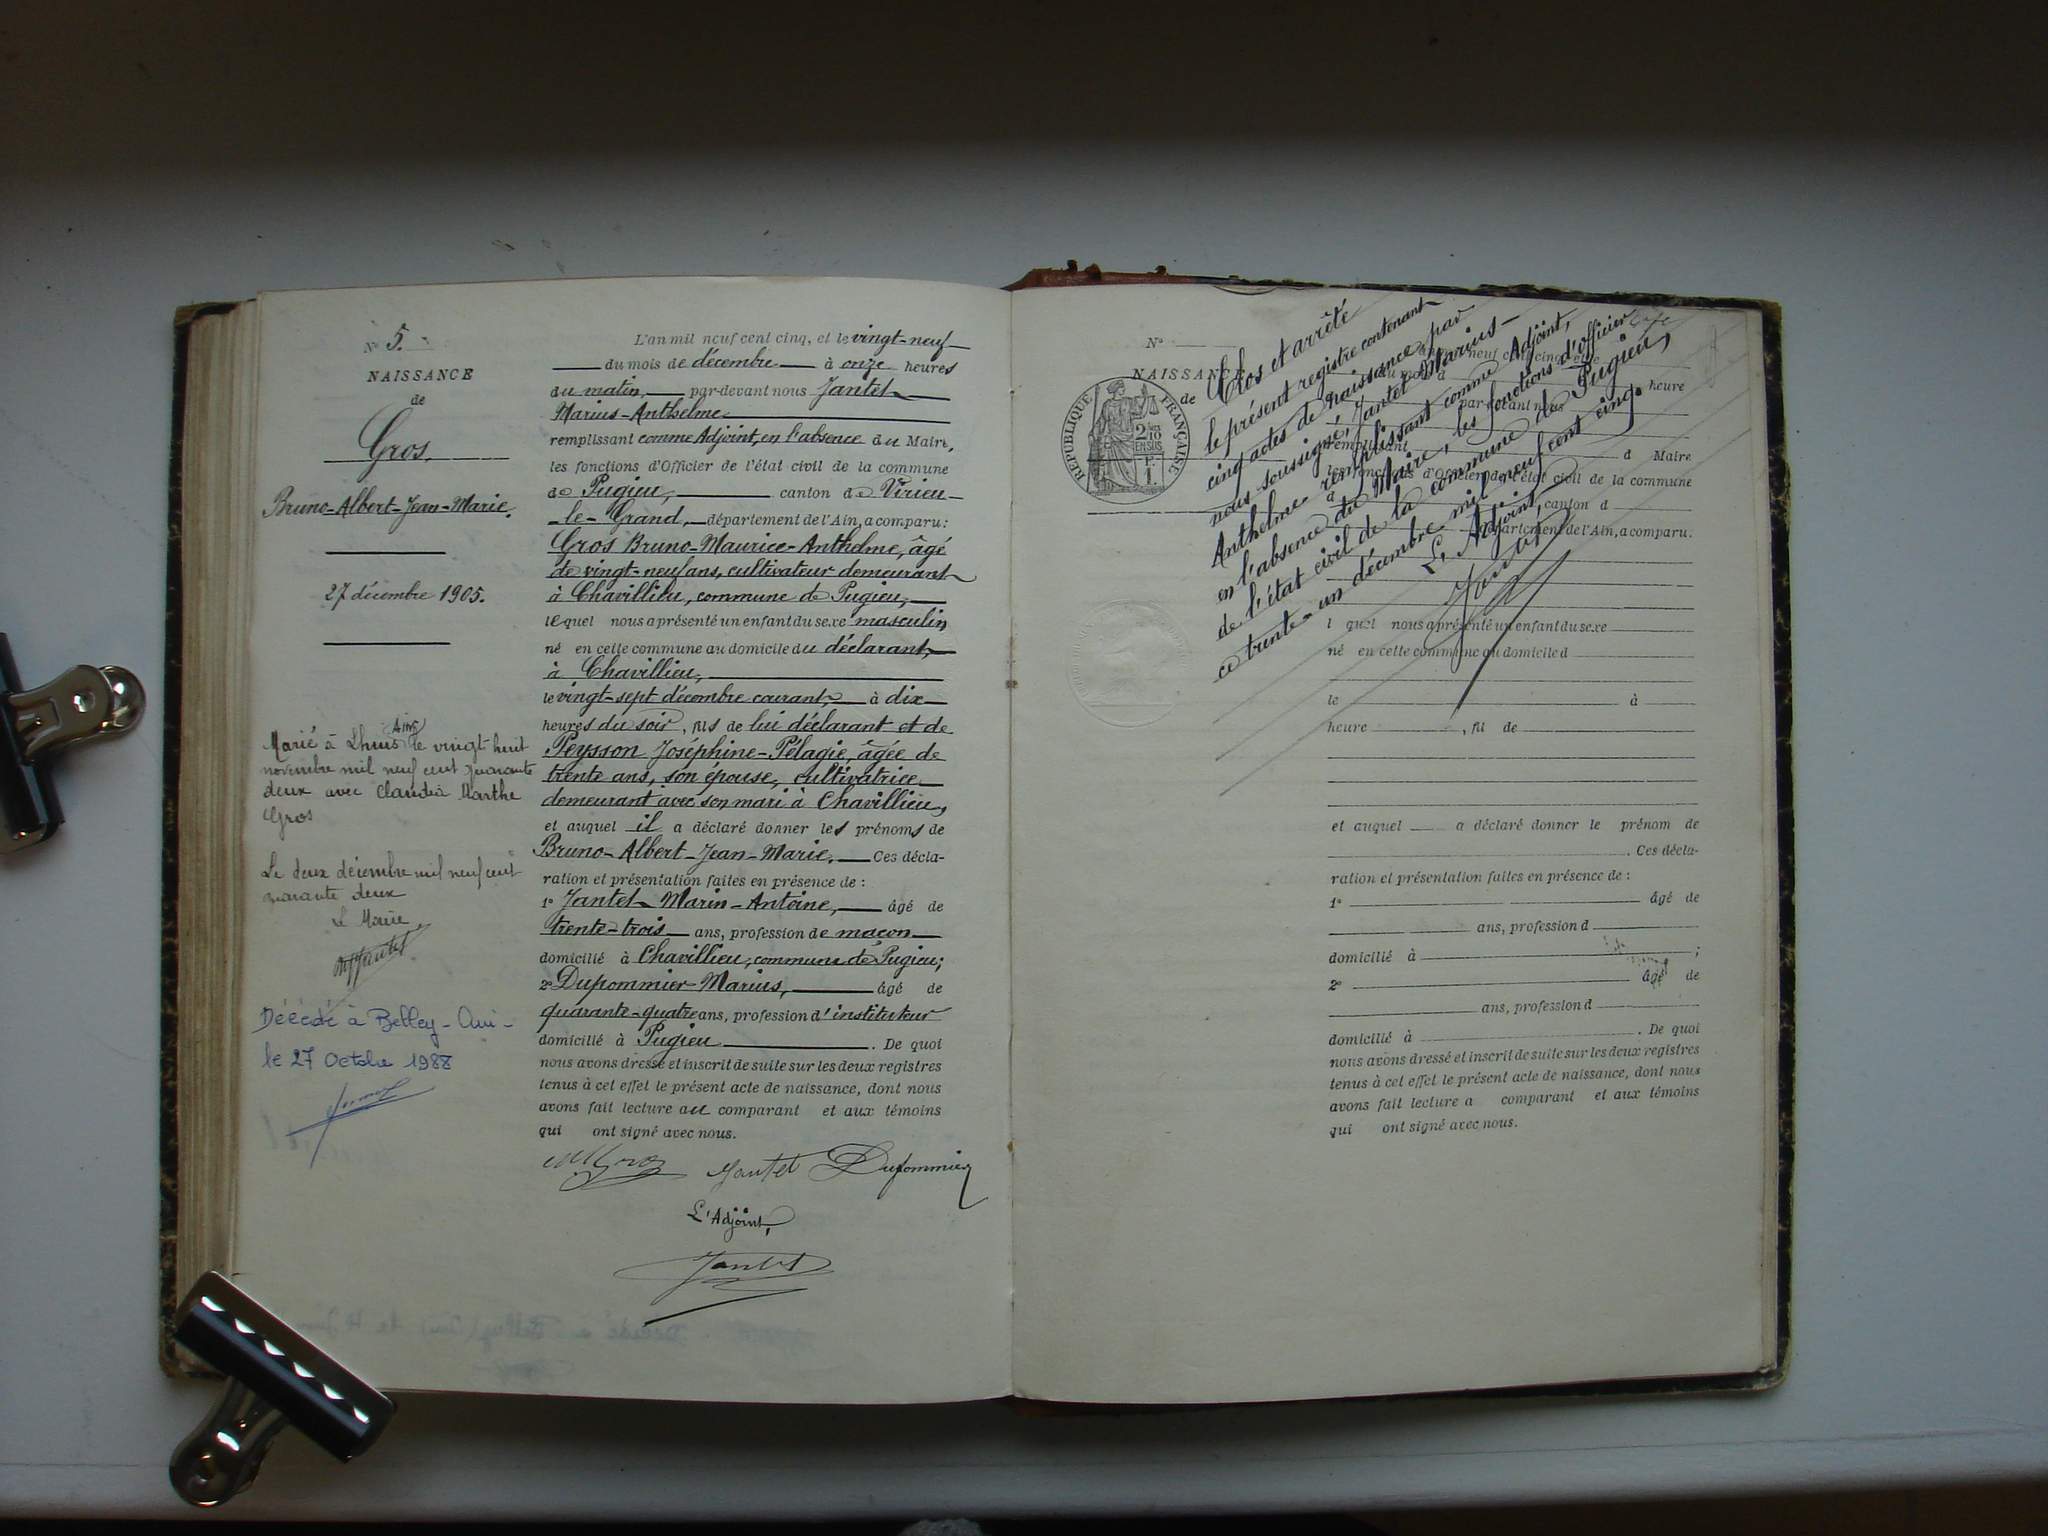 N° 5.
NAISSANCE
de
Gros
Bruno-Albert-Jean-Marie.
27 décembre 1905.
Marié à Lhuis (Ain) le vingt huit
novembre mil neuf cent quarante
deux avec Claudia Marthe
Gros
Le deux décembre mil neuf cent
quarante deux
Le Maire
Décédé à Belley - Ain -
le 27 Octobre 1988
L'an mil neuf cent cinq, et le vingt-neuf
du mois de décembre à onze heures
du matin, par-devant nous Jantet
Marius-Anthelme
remplissant comme Adjoint, en l'absence du Maire,
les fonctions d'Officier de l'état civil de la commune
de Pugieu, canton de Virieu-
-le-Grand, département de l'Ain, a comparu:
Gros Bruno-Maurice-Anthelme, âgé
de vingt-neuf ans, cultivateur demeurant
à Chavillieu, commune de Pugieu,
lequel nous a présenté un enfant du sexe masculin
né en cette commune au domicile du déclarant,
à Chavillieu,
le vingt-sept décembre courant, à dix
heures du soir, fils de lui déclarant et de
Peysson Joséphine-Pélagie, âgée de
trente ans, son épouse, cultivatrice
demeurant avec son mari à Chavillieu,
et auquel il a déclaré donner les prénoms de
Bruno-Albert-Jean-Marie. Ces décla-
ration et présentation faites en présence de :
1° Jantet Marin-Antoine, âgé de
trente-trois ans, profession de maçon
domicilié à Chavillieu, commune de Pugieu;
2° Dupommier Marius, âgé de
quarante-quatre ans, profession d'instituteur
domicilié à Pugieu. De quoi
nous avons dressé et inscrit de suite sur les deux registres
tenus à cet effet le présent acte de naissance, dont nous
avons fait lecture au comparant et aux témoins
qui ont signé avec nous.
Jantet Dupommier
L'Adjoint,
Jantet
N°
NAISSANCE
de
RÉPUBLIQUE FRANÇAISE
2/10
EN SUS
1 F.
Clos et arrêté
le présent registre contenant
cinq actes de naissance, par
nous soussigné, Jantet Marius-
Anthelme remplissant comme Adjoint,
en l'absence du Maire, les fonctions d'officier
de l'état civil de la commune de Pugieu,
ce trente-un décembre mil neuf cent cinq.
L'Adjoint,
Jantet
heure
par-devant nous
remplissant d Maire
les fonctions d'Officier de l'état civil de la commune
d canton d
département de l'Ain, a comparu.
l quel nous a présenté un enfant du sexe
né en cette commune au domicile d
le à
heure , fil de
et auquel a déclaré donner le prénom de
. Ces décla-
ration et présentation faites en présence de :
1° âgé de
ans, profession d
domicilié à ;
2° âgé de
ans, profession d
domicilié à . De quoi
nous avons dressé et inscrit de suite sur les deux registres
tenus à cet effet le présent acte de naissance, dont nous
avons fait lecture a comparant et aux témoins
qui ont signé avec nous.